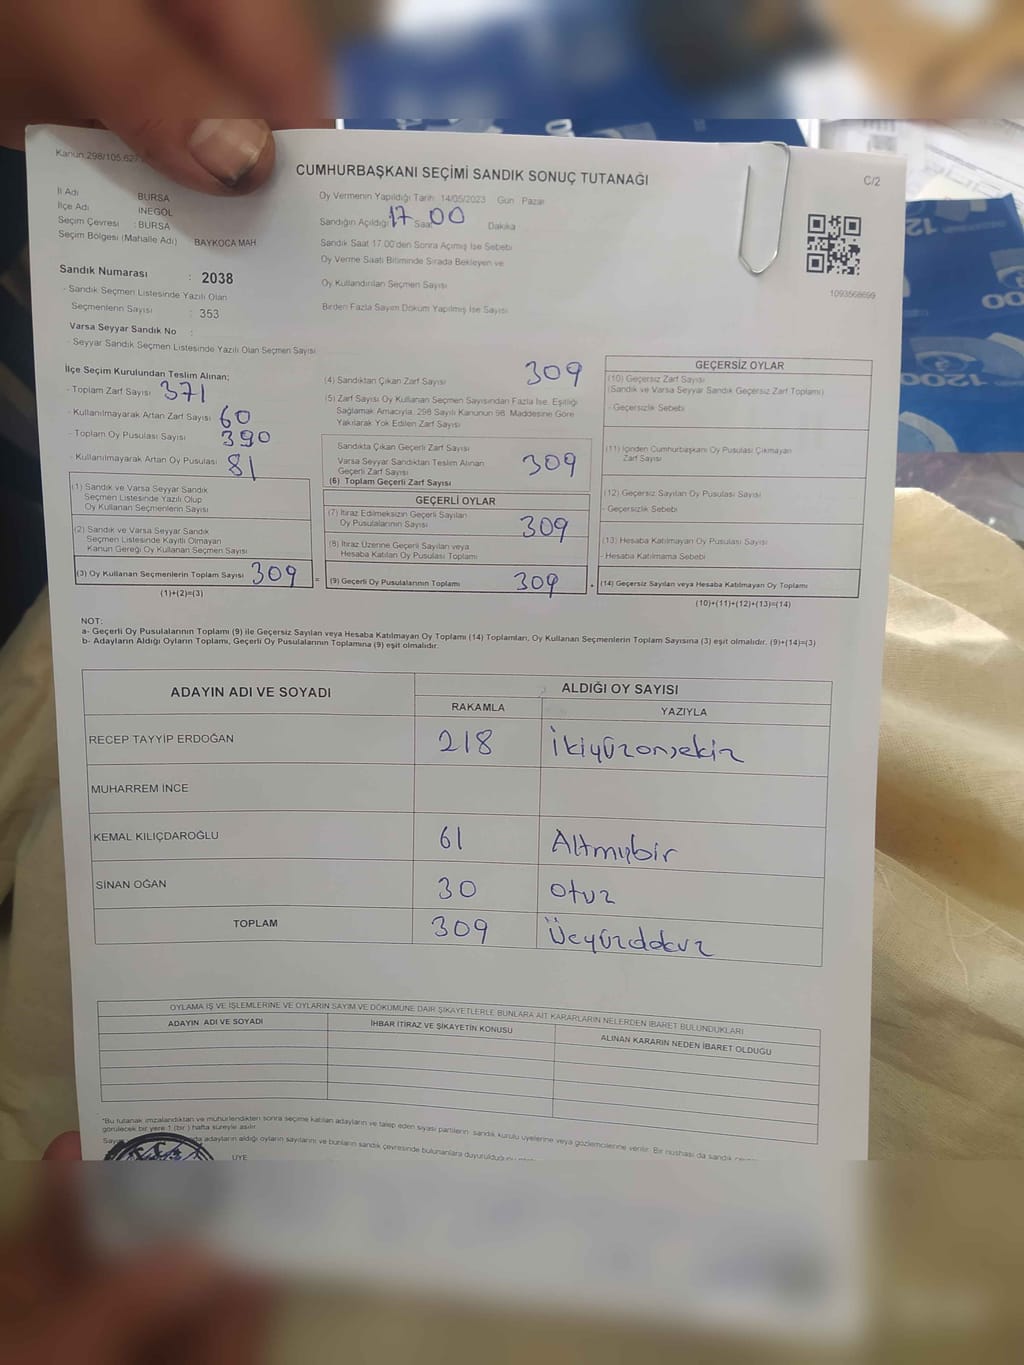 Kanun 298/105.627
CUMHURBAŞKANI SEÇİMİ SANDIK SONUÇ TUTANAĞI
C/2
İl Adı BURSA
İlçe Adı İNEGÖL
Seçim Çevresi : BURSA
Seçim Bölgesi (Mahalle Adı) BAYKOCA MAH
Sandık Numarası : 2038
- Sandık Seçmen Listesinde Yazılı Olan
Seçmenlerin Sayısı : 353
Varsa Seyyar Sandık No :
- Seyyar Sandık Seçmen Listesinde Yazılı Olan Seçmen Sayısı
Oy Vermenin Yapıldığı Tarih 14/05/2023 Gün Pazar
Sandığın Açıldığı 17 Saat 00 Dakika
Sandık Saat 17.00'den Sonra Açımış İse Sebebi
Oy Verme Saati Bitiminde Sırada Bekleyen ve
Oy Kullandırılan Seçmen Sayısı
Birden Fazla Sayım Döküm Yapılmış İse Sayısı
1093568699
İlçe Seçim Kurulundan Teslim Alınan;
- Toplam Zarf Sayısı 371
- Kullanılmayarak Artan Zarf Sayısı 60
- Toplam Oy Pusulası Sayısı 390
- Kullanılmayarak Artan Oy Pusulası 81
(1) Sandık ve Varsa Seyyar Sandık
Seçmen Listesinde Yazılı Olup
Oy Kullanan Seçmenlerin Sayısı
(2) Sandık ve Varsa Seyyar Sandık
Seçmen Listesinde Kayıtlı Olmayan
Kanun Gereği Oy Kullanan Seçmen Sayısı
(3) Oy Kullanan Seçmenlerin Toplam Sayısı 309 =
(1)+(2)=(3)
(4) Sandıktan Çıkan Zarf Sayısı 309
(5) Zarf Sayısı Oy Kullanan Seçmen Sayısından Fazla İse, Eşitliği
Sağlamak Amacıyla, 298 Sayılı Kanunun 98. Maddesine Göre
Yakılarak Yok Edilen Zarf Sayısı
Sandıkta Çıkan Geçerli Zarf Sayısı
Varsa Seyyar Sandıktan Teslim Alınan
Geçerli Zarf Sayısı
(6) Toplam Geçerli Zarf Sayısı 309
GEÇERLİ OYLAR
(7) İtiraz Edilmeksizin Geçerli Sayılan
Oy Pusulalarının Sayısı 309
(8) İtiraz Üzerine Geçerli Sayılan veya
Hesaba Katılan Oy Pusulası Toplamı
(9) Geçerli Oy Pusulalarının Toplamı 309 +
GEÇERSİZ OYLAR
(10) Geçersiz Zarf Sayısı
(Sandık ve Varsa Seyyar Sandık Geçersiz Zarf Toplamı)
- Geçersizlik Sebebi
(11) İçinden Cumhurbaşkanı Oy Pusulası Çıkmayan
Zarf Sayısı
(12) Geçersiz Sayılan Oy Pusulası Sayısı
- Geçersizlik Sebebi
(13) Hesaba Katılmayan Oy Pusulası Sayısı
- Hesaba Katılmama Sebebi
(14) Geçersiz Sayılan veya Hesaba Katılmayan Oy Toplamı
(10)+(11)+(12)+(13)=(14)
NOT:
a- Geçerli Oy Pusulalarının Toplamı (9) ile Geçersiz Sayılan veya Hesaba Katılmayan Oy Toplamı (14) Toplamları, Oy Kullanan Seçmenlerin Toplam Sayısına (3) eşit olmalıdır. (9)+(14)=(3)
b- Adayların Aldığı Oyların Toplamı, Geçerli Oy Pusulalarının Toplamına (9) eşit olmalıdır.
ADAYIN ADI VE SOYADI ALDIĞI OY SAYISI
RAKAMLA YAZIYLA
RECEP TAYYİP ERDOĞAN 218 İkiyüzonsekiz
MUHARREM İNCE
KEMAL KILIÇDAROĞLU 61 Altmışbir
SİNAN OĞAN 30 Otuz
TOPLAM 309 Üçyüzdokuz
OYLAMA İŞ VE İŞLEMLERİNE VE OYLARIN SAYIM VE DÖKÜMÜNE DAİR ŞİKAYETLERLE BUNLARA AİT KARARLARIN NELERDEN İBARET BULUNDUKLARI
ADAYIN ADI VE SOYADI İHBAR İTİRAZ VE ŞİKAYETİN KONUSU ALINAN KARARIN NEDEN İBARET OLDUĞU
*Bu tutanak imzalandıktan ve mühürlendikten sonra seçime katılan adayların ve talep eden siyasi partilerin sandık kurulu üyelerine veya gözlemcilerine verilir. Bir nüshası da sandık
görülecek bir yere 1 (bir) hafta süreyle asılır.
adayların aldığı oyların sayılarını ve bunların sandık çevresinde bulunanlara duyurulduğunu
ÜYE
12
1200